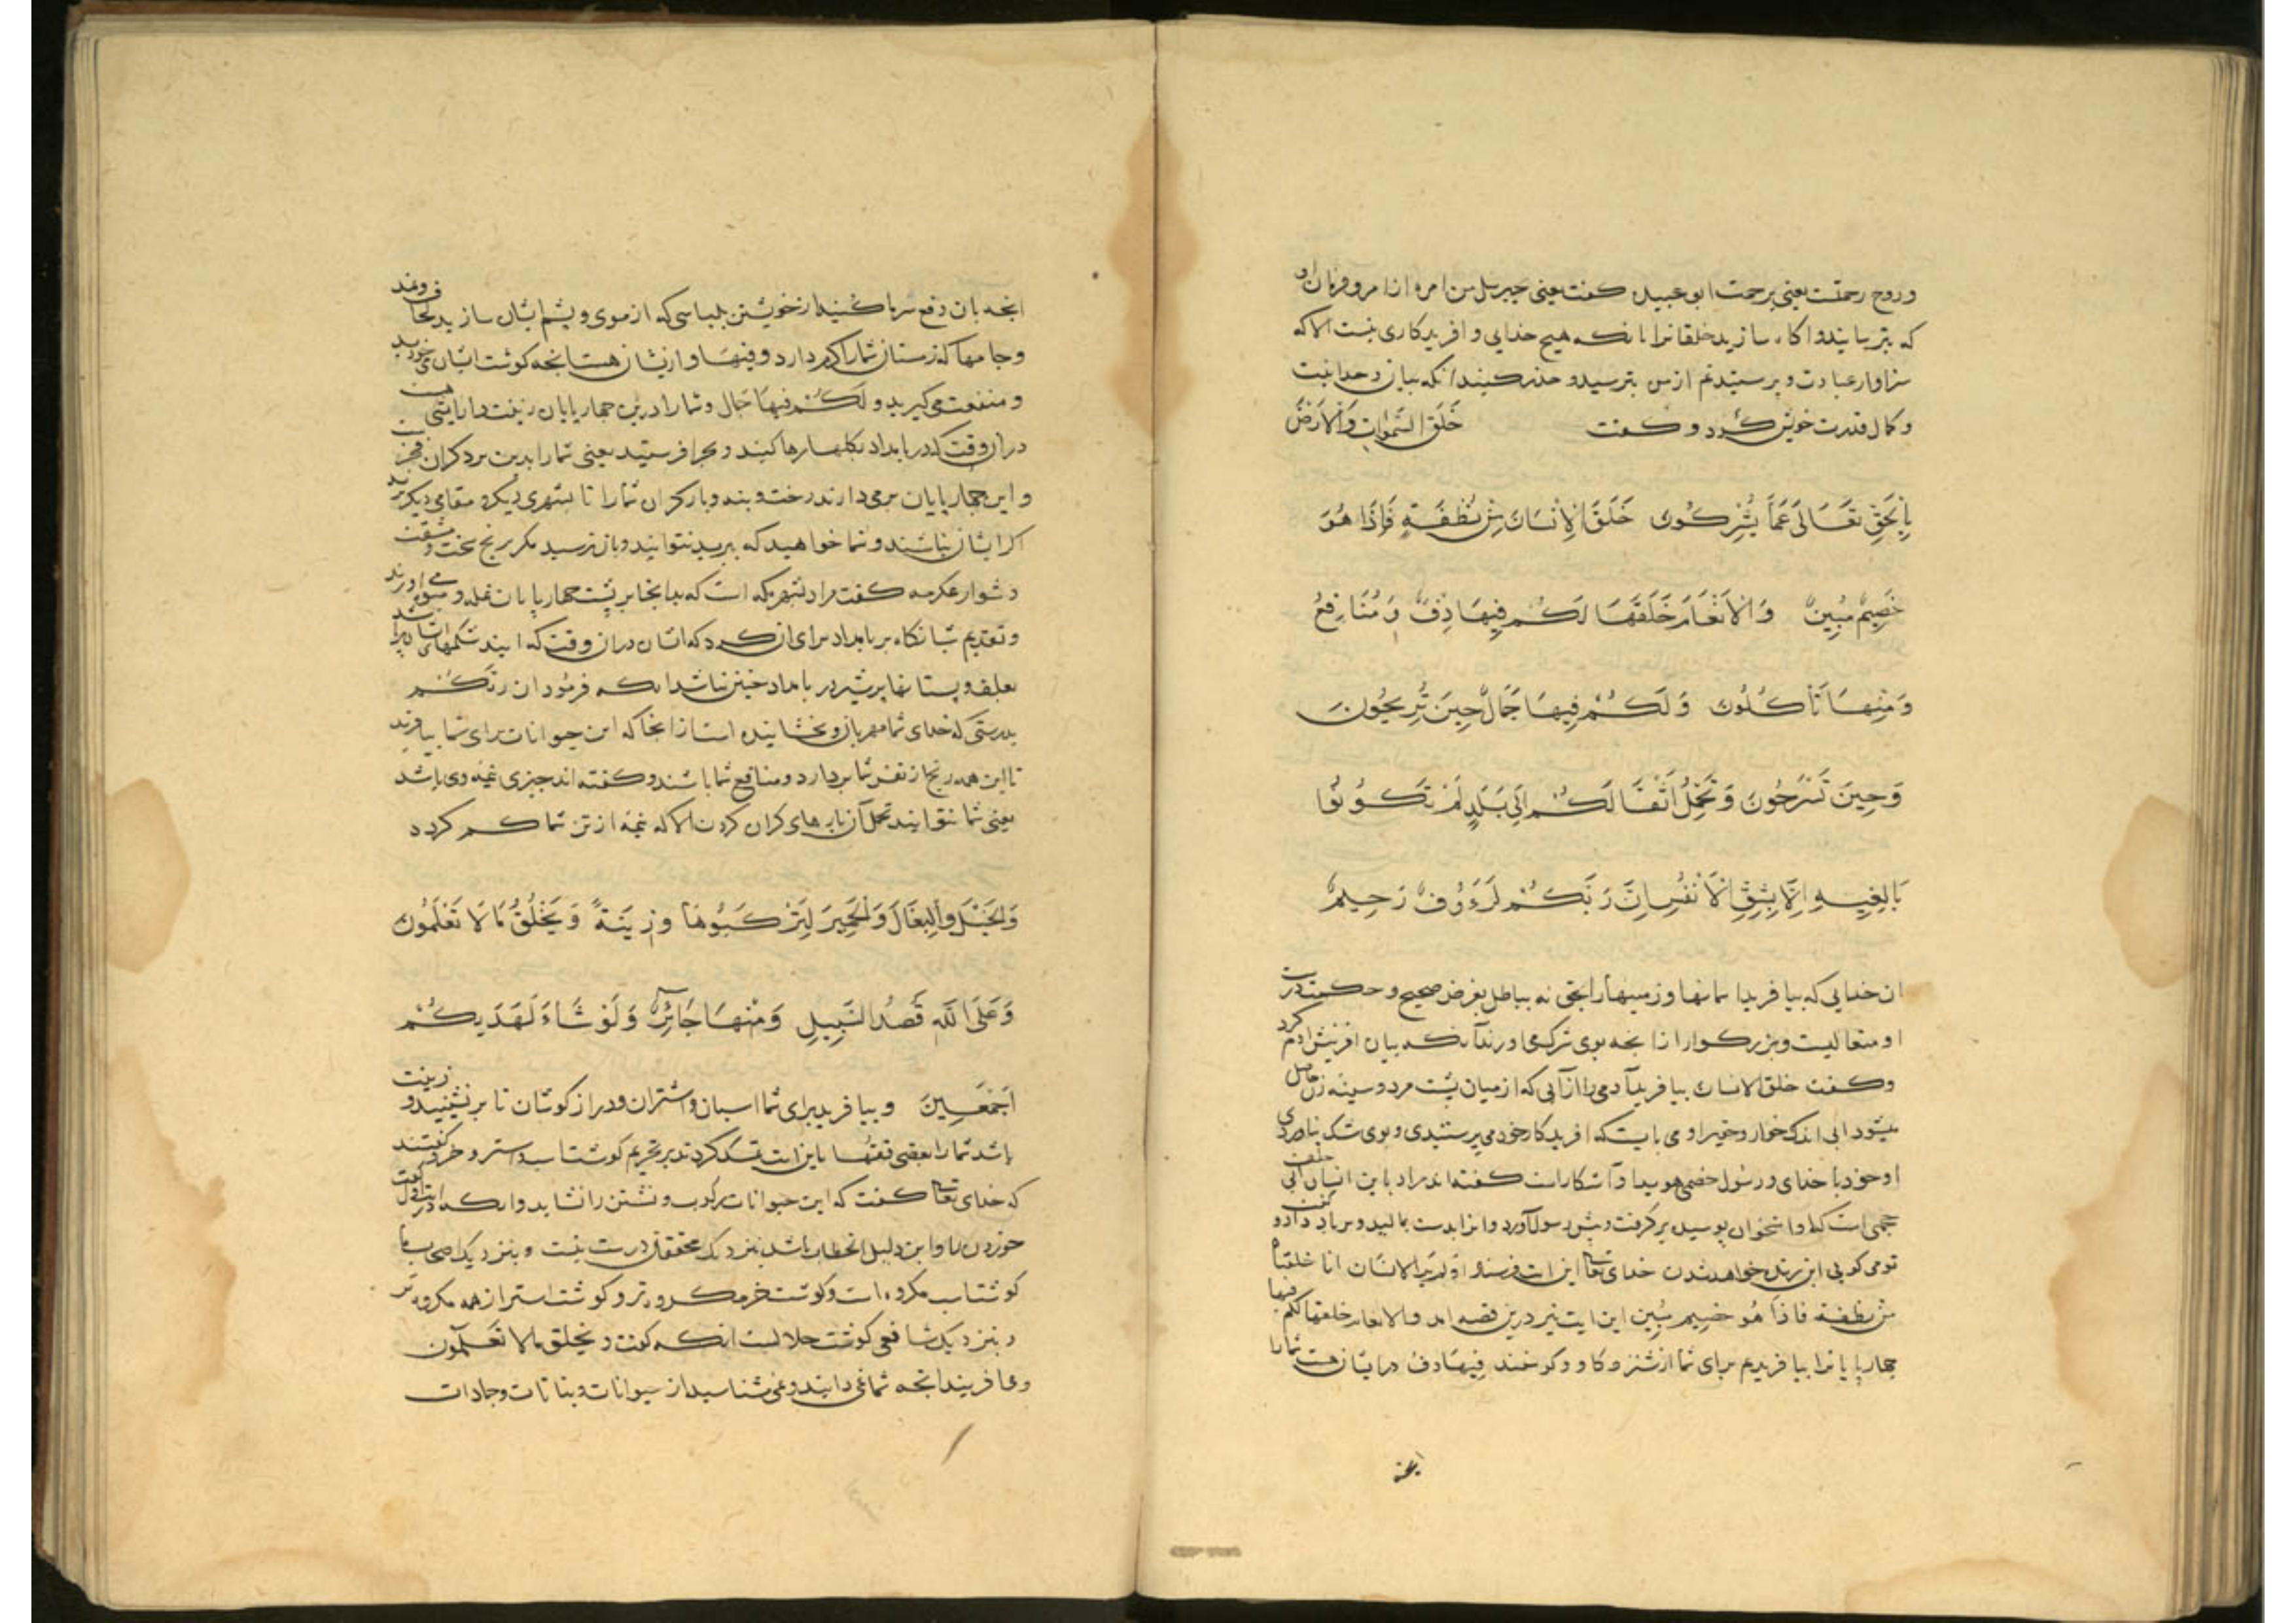 و روح رحمتست یعنی برحمت ابو عبیده کفت یعنی جبریل من امره از امر و فرمان او
که بترسانید و اکاه سازید خلقانرا بانکه هیچ خدایی و افریدکاری نیست الا که
سزاوار عبادت و پرستیدنم از من بترسید و حذر کنید انکه بیان وحدانیت
و کمال قدرت خویش کرد و کفت خَلَقَ السَّمٰوَاتِ وَالْاَرْضَ
بِالْحَقِّ تَعَالٰى عَمَّا يُشْرِكُونَ خَلَقَ الْاِنْسَانَ مِنْ نُطْفَةٍ فَاِذَا هُوَ
خَصِيمٌ مُبِينٌ وَالْاَنْعَامَ خَلَقَهَا لَكُمْ فِيهَا دِفْءٌ وَمَنَافِعُ
وَمِنْهَا تَأْكُلُونَ وَلَكُمْ فِيهَا جَمَالٌ حِينَ تُرِيحُونَ
وَحِينَ تَسْرَحُونَ وَتَحْمِلُ اَثْقَالَكُمْ اِلٰى بَلَدٍ لَمْ تَكُونُوا
بَالِغِيهِ اِلَّا بِشِقِّ الْاَنْفُسِ اِنَّ رَبَّكُمْ لَرَءُوفٌ رَحِيمٌ
ان خدایی که بیافرید اسمانها و زمینها را بحق نه بباطل بغرض صحیح و حکمت درست
او متعالیست و بزرکوار از انجه بوی شرک می اورند آنکه بیان افرینش ادم کرد
و کفت خلق الانسان بیافرید آدمی را از آبی که از میان پشت مرد و سینه زن حاصل
میشود ابی اندک خوار و حقیر او می بایست که افریدکار خود می پرستیدی و بوی شک نیاوردی
او خود با خدای و رسول خصمی هویدا و آشکاراست کفته اند مراد باین انسان ابی خلف
جمحی است که او استخوان پوسیده برکرفت و پیش رسول آورد و انرا بدست بمالید و بر باد داد و کفت
تو می کویی این زنده خواهد شدن خدای تعالی این ایت فرستاد اولم یر الانسان انا خلقناه
من نطفة فاذا هو خصیم مبین این ایت نیز درین قصه امد والانعام خلقها لکم فیها
جهارپایانرا بیافریدم برای شما از شتر و کاو و کوسفند فیها دفء در ایشان هست شما را
انجه
انجه بان دفع سرما کنید از خویشتن بلباسی که از موی و پشم ایشان سازید
و جامها که زمستان شما را کرم دارد و فیها و ازیشان هست انجه کوشت ایشان می خورید
و منفعت می کیرید و لکم فیها جمال و شما را درین جهارپایان زینت و ارایشی هست
دران وقت که در بامداد بکلها رها کنید و بجرا فرستید یعنی شما را بدین بر دکران فخرست
و این جهارپایان برمی دارند رخت و بنه و بار کران شما را تا بشهری دیکر و مقامی دیکر برند
اکر ایشان نباشند و شما خواهید که ببرید نتوانید و بان نرسید مکر برنج سخت و مشقت
دشوار عکرمه کفت مراد شهر مکه است که بدانجا بر پشت جهارپایان غله و میوه می اورند
و تقدیم شبانکاه بر بامداد برای ان کرد که ایشان دران وقت که ایند شکمهای ایشان پر باشد
بعلف و پستانها پرشیر در بامداد جنین نباشد انکه فرمود ان ربکم
بدرستی که خدای شما مهربان و بخشاینده است از انجا که این حیوانات برای شما بیافرید
تا این همه رنج از نفس شما بردارد و منافع شما باشند و کفته اند جیزی نیمه وی باشد
یعنی شما نتوانید تحمل آن بارهای کران کردن الا که نیمه از تن شما کم کردد
وَالْخَيْلَ وَالْبِغَالَ وَالْحَمِيرَ لِتَرْكَبُوهَا وَزِينَةً وَيَخْلُقُ مَا لَا تَعْلَمُونَ
وَعَلَى اللّٰهِ قَصْدُ السَّبِيلِ وَمِنْهَا جَائِرٌ وَلَوْ شَاءَ لَهَدٰيكُمْ
اَجْمَعِينَ و بیافرید برای شما اسبان و استران و دراز کوشان تا برنشینید و زینت
باشد شما را بعضی فقها باین ایت تمسک کردند بر تحریم کوشت اسب و استر و خر و کفتند
که خدای تعالی کفت که این حیوانات رکوب و نشستن را نشاید و انکه در
خوردن را و این دلیل الخطاب باشد نزدیک محققان درست نیست و بنزدیک اصحاب ما
کوشت اسب مکروه است و کوشت خر مکروه تر و کوشت استر از همه مکروه تر
و بنزدیک شافعی کوشت حلالست انکه کفت و یخلق ما لا تعلمون
و می افریند انجه شما نمی دانید و نمی شناسید از حیوانات و نباتات و جمادات